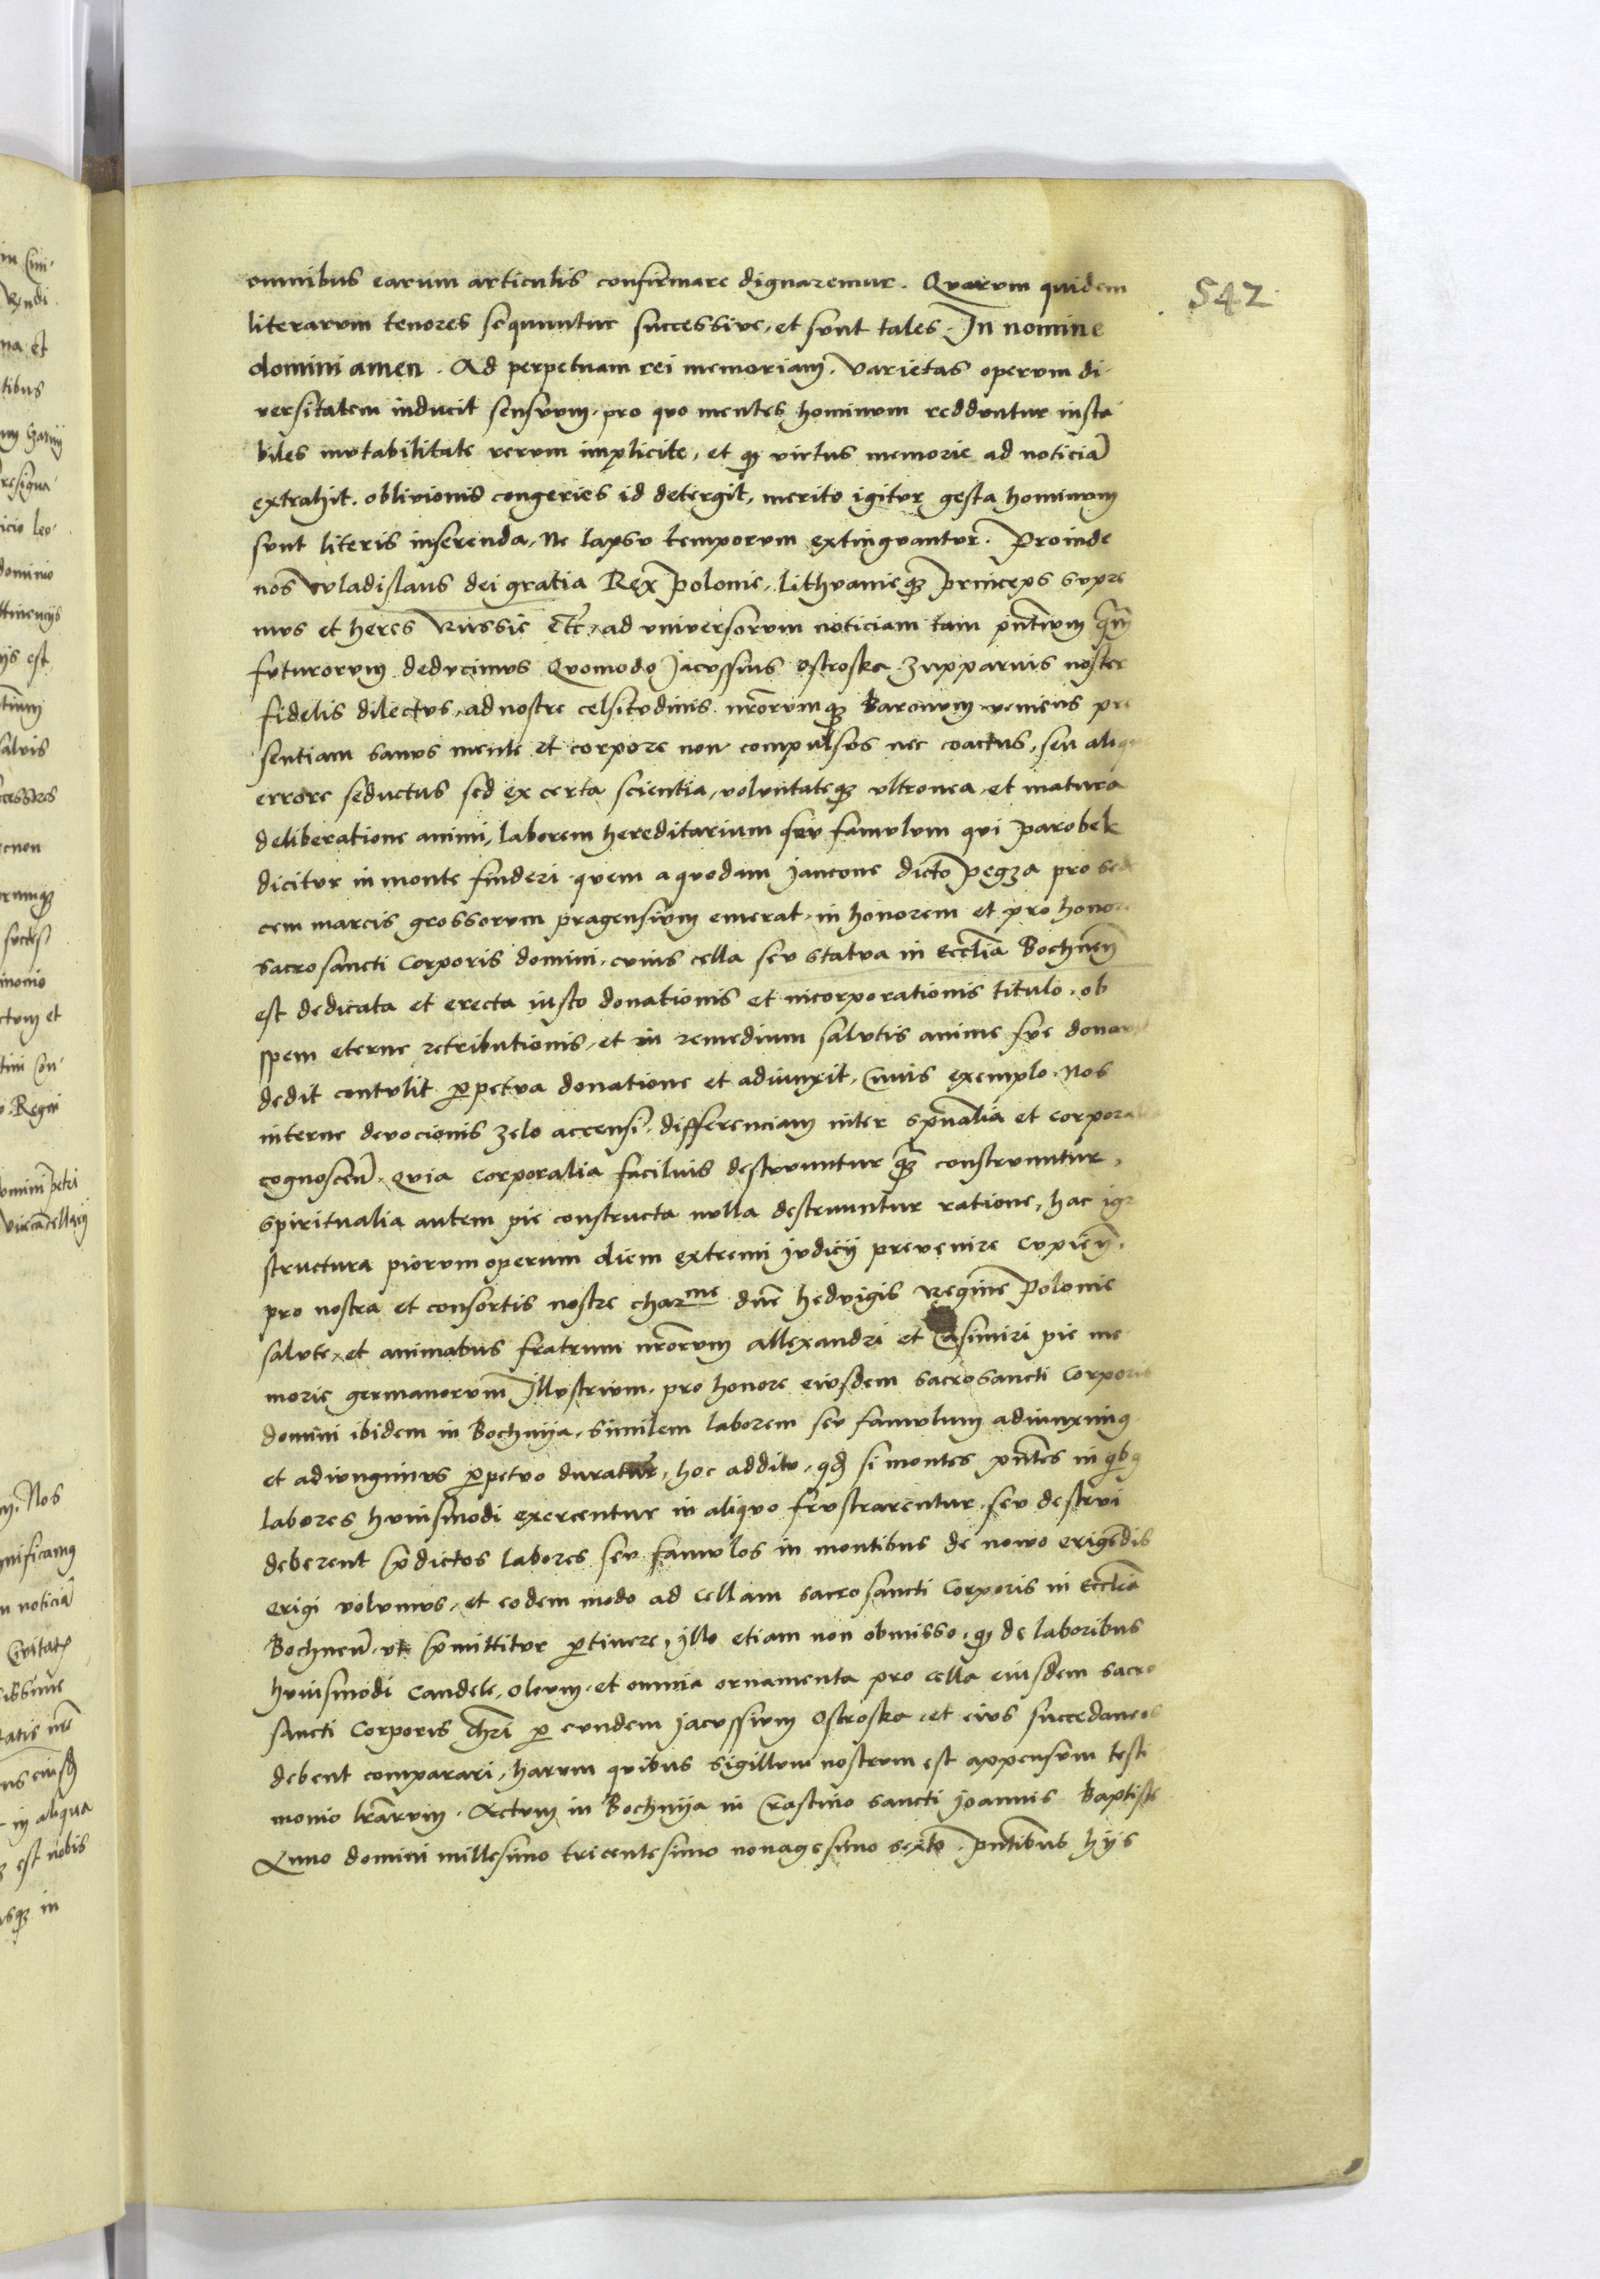 omnibus earum articulis confirmare dignaremur. Quarum quidem
542
literarum tenores sequuntur successive, et sunt tales. In nomine
domini amen. Ad perpetuam rei memoriam. Varietas operum di-
versitatem inducit sensuum, pro quo mentes hominum redduntur insta
biles mutabilitate rerum implicite, et qȝ virtus memorie ad noticiã
extrahit, oblivionis congeries id detergit, merito igitur gesta hominum
sunt literis inserenda, Ne lapsu temporum extinguantur. Proinde
nos Vuladislaus dei gratia Rex Polonie, Lithvanieqȝ princeps supre
mus et heres Russie etc, ad universorum noticiam tam pñtium qȝ
futurorum deducimus Quomodo Jacussius Ostroska Zupparius noster
fidelis dilectus, ad nostre celsitudinis nrõrumqȝ Baronum veniens pre
sentiam sanus mente et corpore non compulsus nec coactus, seu aliquo
errore seductus sed ex certa scientia, voluntateqȝ ultronea, et matura
deliberatione animi, laborem hereditarium seu famulum qui parobek
dicitur in monte finderi quem a quodam jancone dicto Pęgza pro sede
cem marcis grossorum pragensium emerat, in honorem et pro honore
sacrosancti Corporis domini, cuius cella seu statua in Ecclia Bochneñ
est dedicata et erecta iusto donationis et incorporationis titulo, ob
spem eterne retributionis, et in remedium salutis anime sue donavit
dedit contulit ꝑpetua donatione et adiunxit, Cuius exemplo Nos
interne devocionis zelo accensi, differenciam inter spũalia et corporalia
cognosceñ. Quia corporalia facilius destruuntur qȝ construuntur,
spiritualia autem pie constructa nulla destruuntur ratione, hac igr
structura piorum operum diem extremi judicij prevenire cupieñ,
pro nostra et consortis nostre charme dne hedvigis Regine Polonie
salute, et animabus fratrum nrõrum Allexandri et Casimiri pie me
morie germanorum Illustrium, pro honore eiusdem sacrosancti Corporis
domini ibidem in Bochnija, similem laborem seu famulum adiunximꝰ
et adiungimus ꝑpetuo duratur, hoc addito, qd si montes pñtes in qibꝰ
labores huiusmodi exercentur in aliquo frustrarentur, seu destrui
deberent pdictos labores seu famulos in montibus de novo erigẽdis
erigi volumus, et eodem modo ad cellam sacrosancti Corporis in Ecclia
Bochneñ, ut pmittitur ꝑtinere, illo etiam non obmisso, qȝ de laboribus
huiusmodi Candele, oleum, et omnia ornamenta pro cella eiusdem sacro
sancti Corporis chri ꝑ eundem jacussium Ostroska, et eius succedaneos
debent comparari, harum quibus sigillum nostrum est appensum testi
monio lrarum. Actum in Bochnija in Crastino sancti Joannis Baptiste
Anno domini millesimo tricentesimo nonagesimo sexto. pñtibus hijs